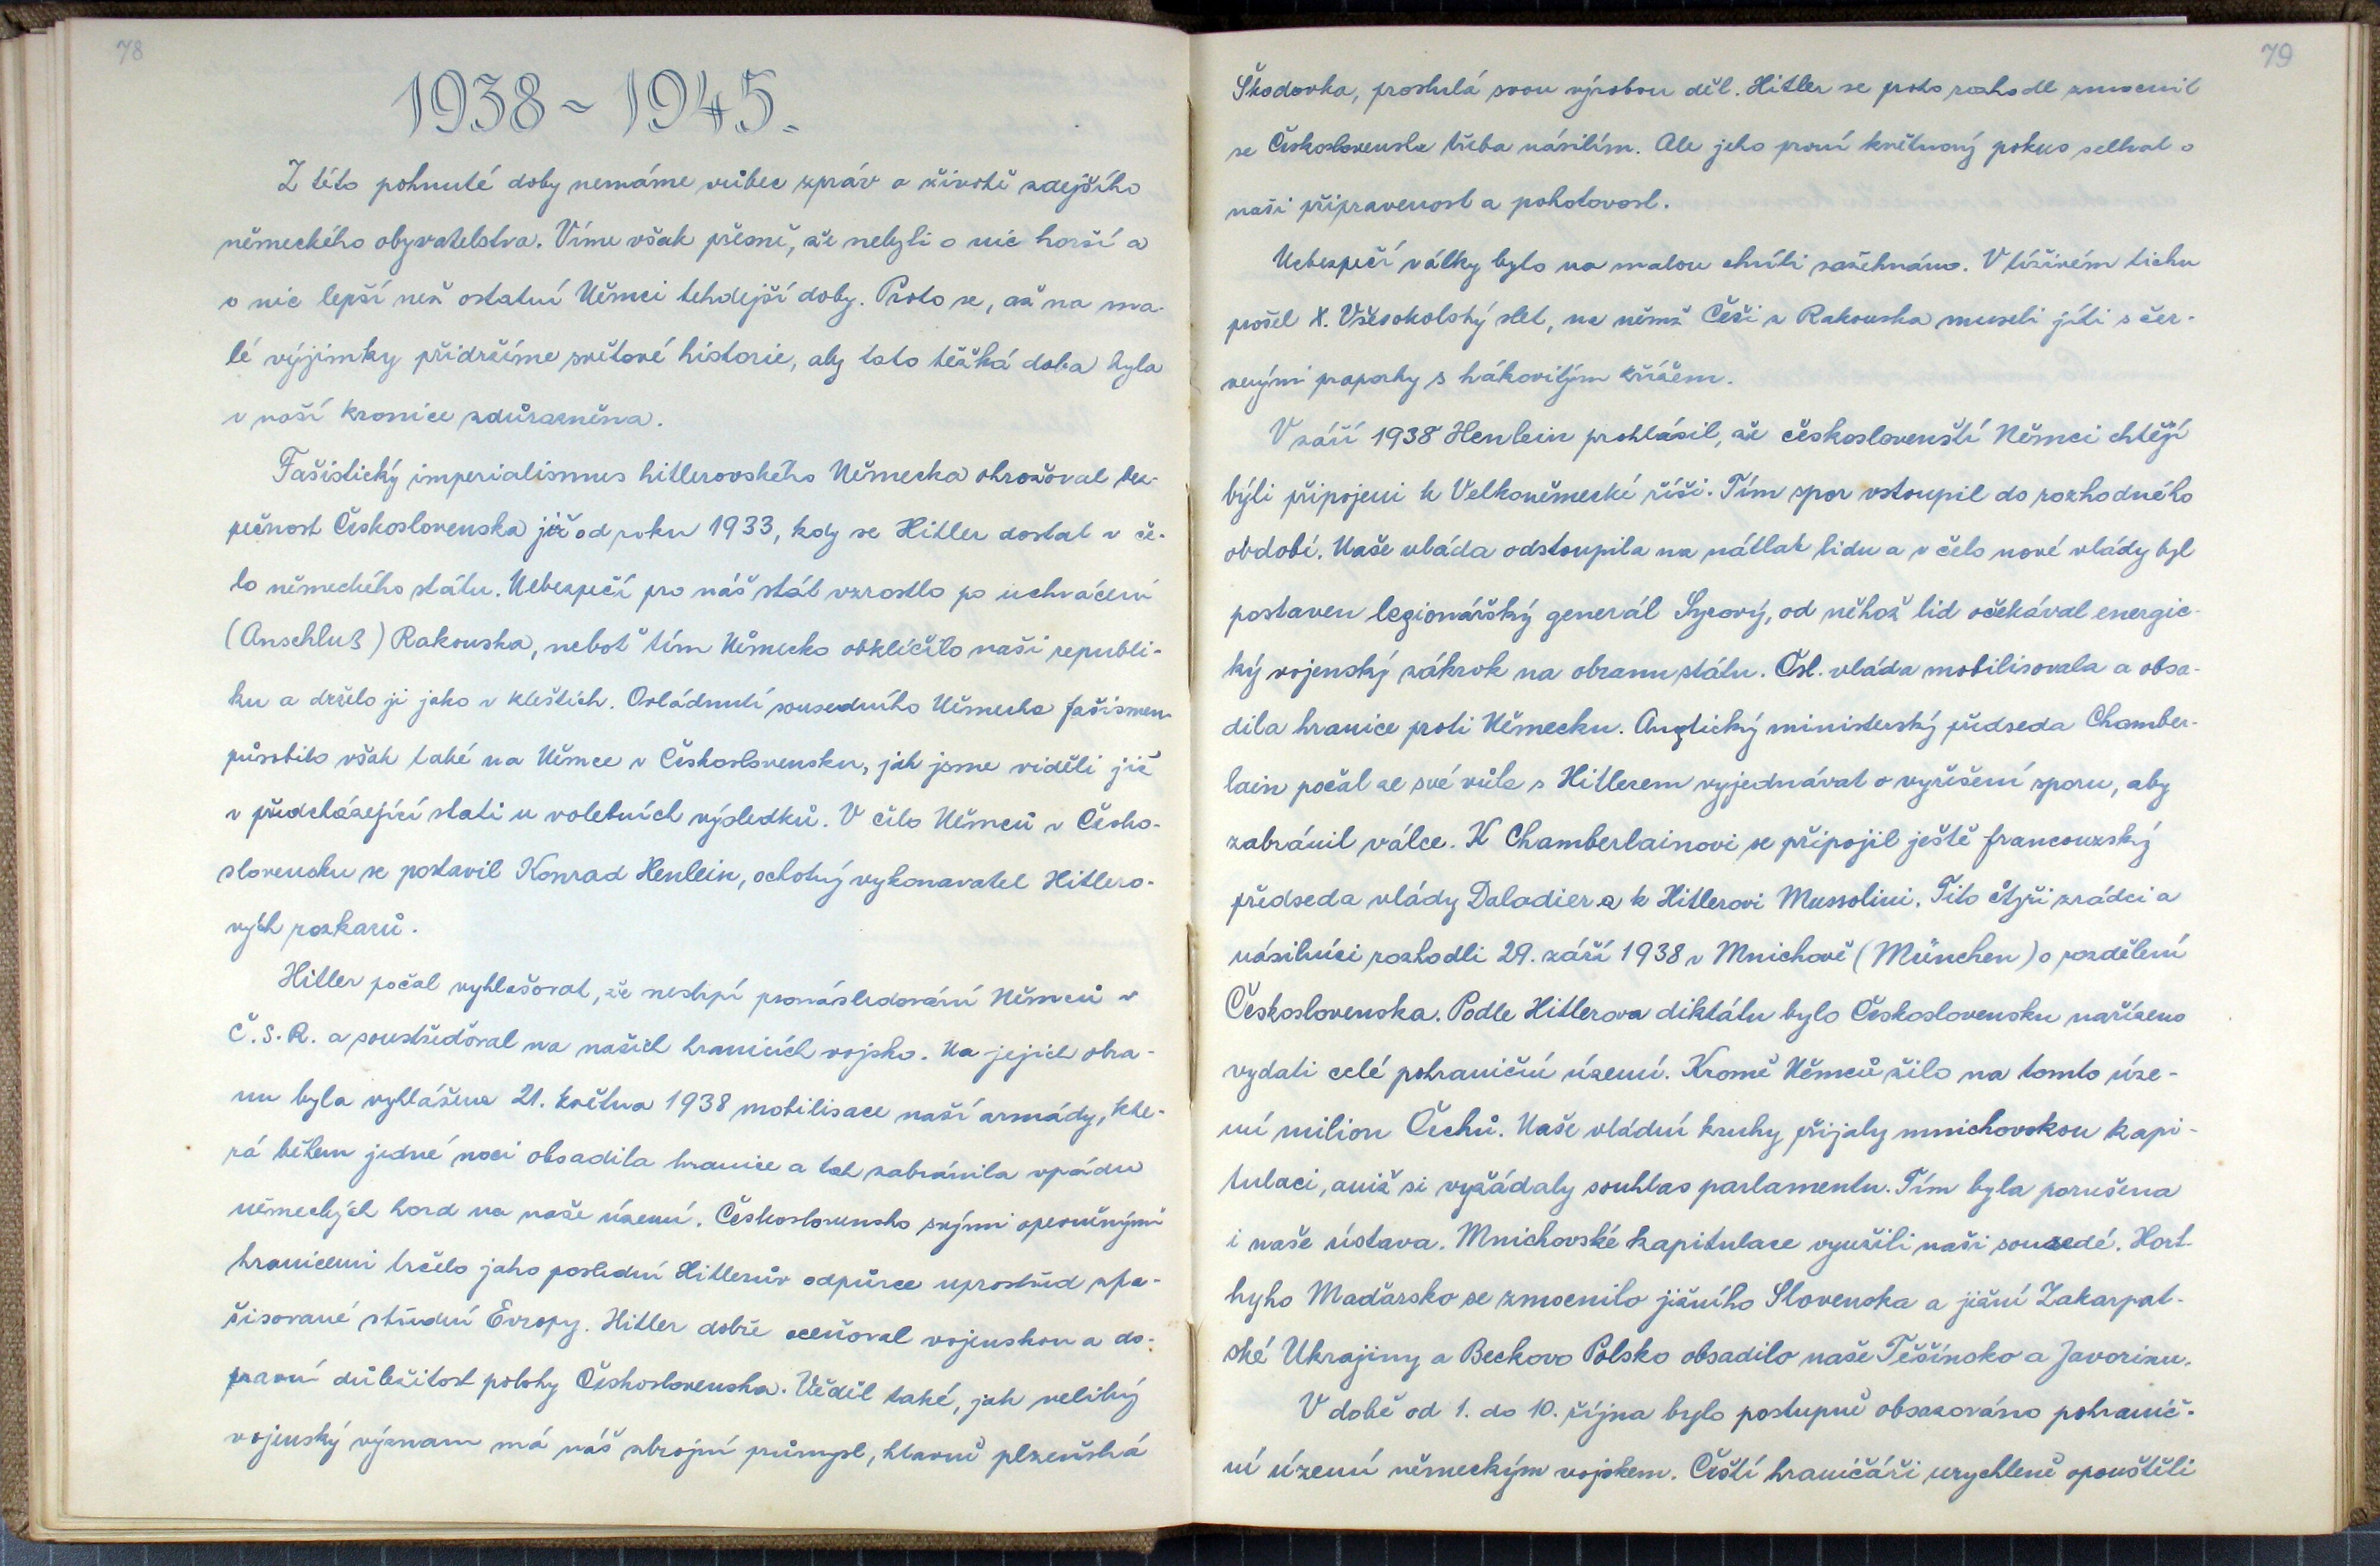 78
1938 ~ 1945.
Z této pohnuté doby nemáme vůbec zpráv o životě zdejšího
německého obyvatelstva. Víme však přesně, že nebyli o nic horší a
o nic lepší než ostatní Němci tehdejší doby. Proto se, až na ma-
lé výjimky přidržíme světové historie, aby tato těžká doba byla
v naší kronice zdůrazněna.
Fašistický imperialismus hitlerovského Německa ohrožoval bez-
pečnost Československa již od roku 1933, kdy se Hitler dostal v če-
lo německého státu. Nebezpečí pro náš stát vzrostlo po uchvácení
(Anschluß) Rakouska, neboť tím Německo obklíčilo naši republi-
ku a drželo ji jako v kleštích. Ovládnutí sousedního Německa fašismem
působilo však také na Němce v Československu, jak jsme viděli již
v předcházející stati u volebních výsledků. V čelo Němců v Česko-
slovensku se postavil Konrad Henlein, ochotný vykonavatel Hitlero-
vých rozkazů.
Hitler počal vyhlašovat, že nestrpí pronásledování Němců v
Č.S.R. a soustřeďoval na našich hranicích vojsko. Na jejich obra-
nu byla vyhlášena 21. května 1938 mobilisace naší armády, kte-
rá během jedné noci obsadila hranice a tak zabránila vpádu
německých hord na naše území. Československo svými opevněnými
hranicemi trčelo jako poslední Hitlerův odpůrce uprostřed zfa-
šisované střední Evropy. Hitler dobře oceňoval vojenskou a do-
pravní důležitost polohy Československa. Věděl také, jak veliký
vojenský význam má náš zbrojní průmysl, hlavně plzeňská
79
Škodovka, proslulá svou výrobou děl. Hitler se proto rozhodl zmocnit
se Československa třeba násilím. Ale jeho první květnový pokus selhal o
naši připravenost a pohotovost.
Nebezpečí války bylo na malou chvíli zažehnáno. V tíživém tichu
prošel X. Všesokolský slet, na němž Češi z Rakouska museli jíti s čer-
venými praporky s hákovitým křížem.
V září 1938 Henlein prohlásil, že českoslovenští Němci chtějí
býti připojeni k Velkoněmecké říši. Tím spor vstoupil do rozhodného
období. Naše vláda odstoupila na nátlak lidu a v čelo nové vlády byl
postaven legionářský generál Syrový, od něhož lid očekával energic-
ký vojenský zákrok na obranu státu. Čsl. vláda mobilisovala a obsa-
dila hranice proti Německu. Anglický ministerský předseda Chamber-
lain počal ze své vůle s Hitlerem vyjednávat o vyřešení sporu, aby
zabránil válce. K Chamberlainovi se připojil ještě francouzský
předseda vlády Daladier a k Hitlerovi Mussolini. Tito čtyři zrádci a
násilníci rozhodli 29. září 1938 v Mnichově (München) o rozdělení
Československa. Podle Hitlerova diktátu bylo Československu nařízeno
vydati celé pohraniční území. Kromě Němců žilo na tomto úze-
ní milion Čechů. Naše vládní kruhy přijaly mnichovskou kapi-
tulaci, aniž si vyžádaly souhlas parlamentu. Tím byla porušena
i naše ústava. Mnichovské kapitulace využili naši sousedé. Hort-
hyho Maďarsko se zmocnilo jižního Slovenska a jižní Zakarpat-
ské Ukrajiny a Beckovo Polsko obsadilo naše Těšínsko a Javorinu.
V době od 1. do 10. října bylo postupně obsazováno pohranič-
ní území německým vojskem. Čeští hraničáři urychleně opouštěli